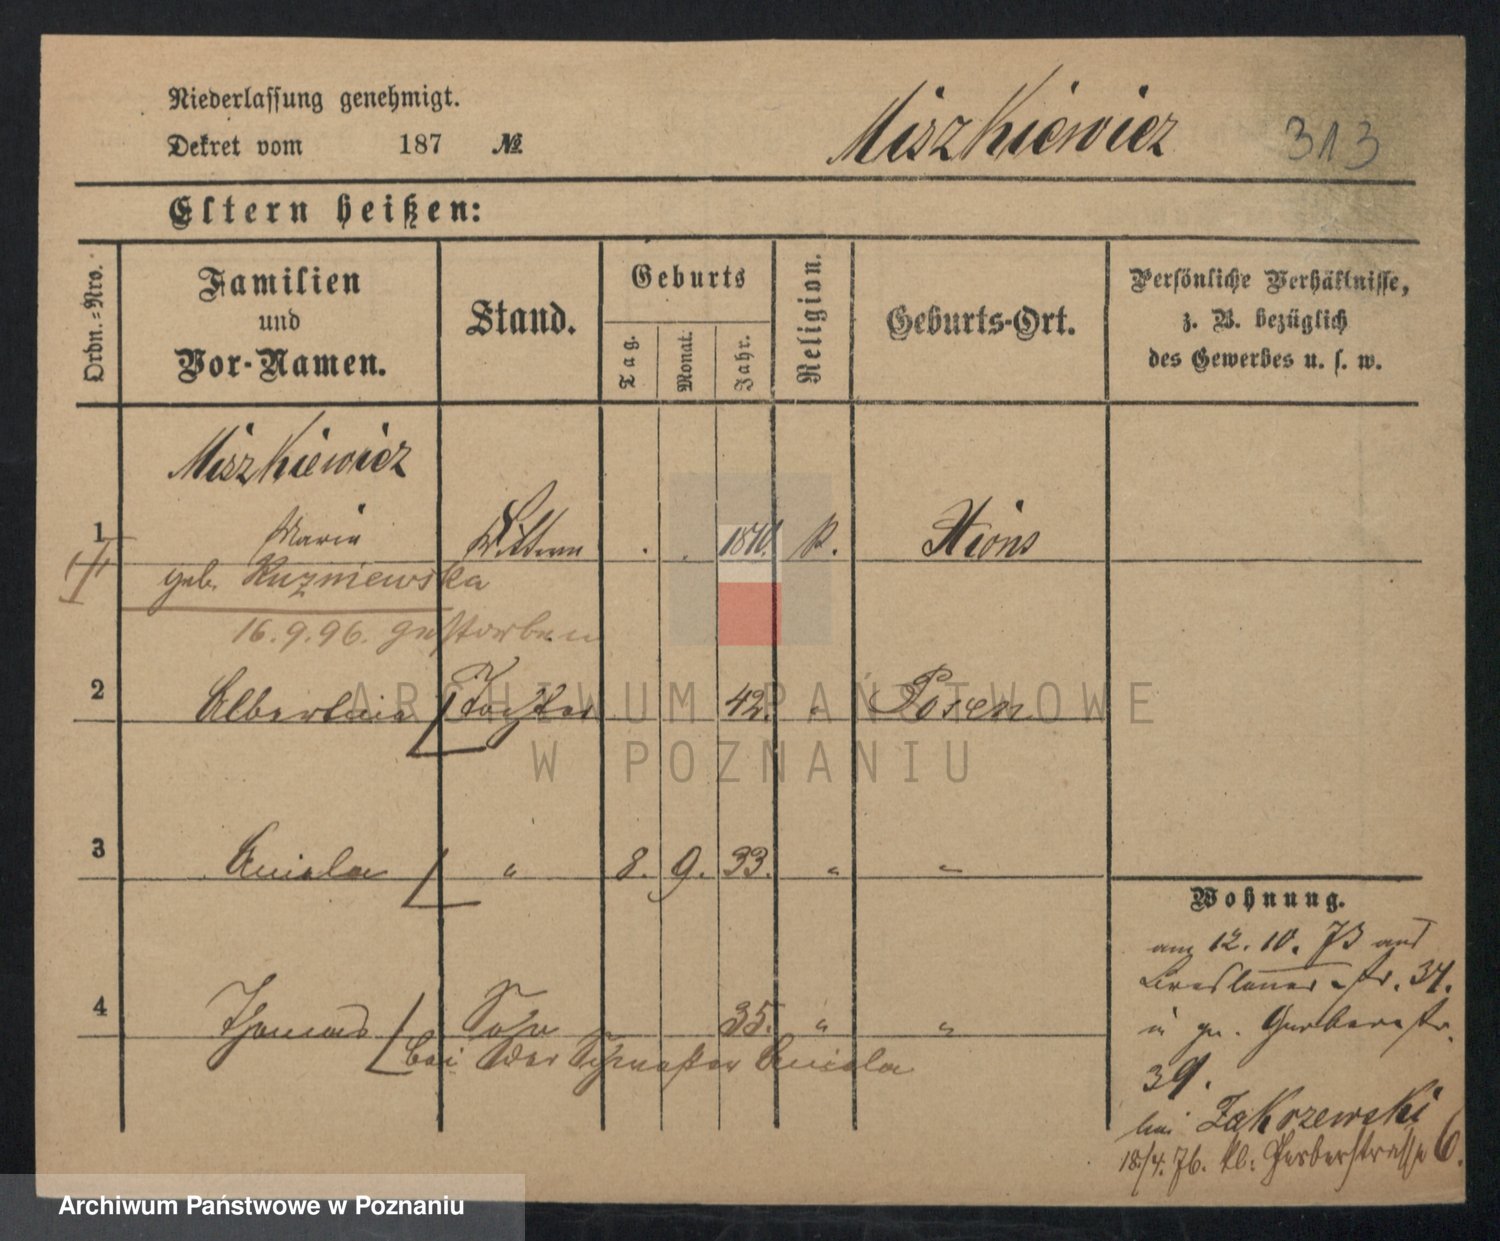 Niederlassung genehmigt.
Dekret vom 187 №
Miszkiewicz 313
Eltern heißen:
Ordn.-Nro.
Familien und Vor-Namen.
Stand.
Geburts
Tag. Monat. Jahr.
Religion.
Geburts-Ort.
Persönliche Verhältnisse,
z. B. bezüglich
des Gewerbes u. s. w.
Miszkiewicz
1 Maria . . K. Xions
geb. Kuzniewska
16.9.96. gestorben
2 Albertine Tochter 42. " Posen
3 Aniela " 8. 9. 33. " "
4 Thomas Sohn 35. " "
bei der Schwester Aniela
Wohnung.
am 12. 10. 73 aus
Breslauer-str. 34.
in gr. Gerberstr.
39.
bei Zakrzewski
18/4. 76. kl: Gerberstrasse 6.
ARCHIWUM PAŃSTWOWE
W POZNANIU
Archiwum Państwowe w Poznaniu